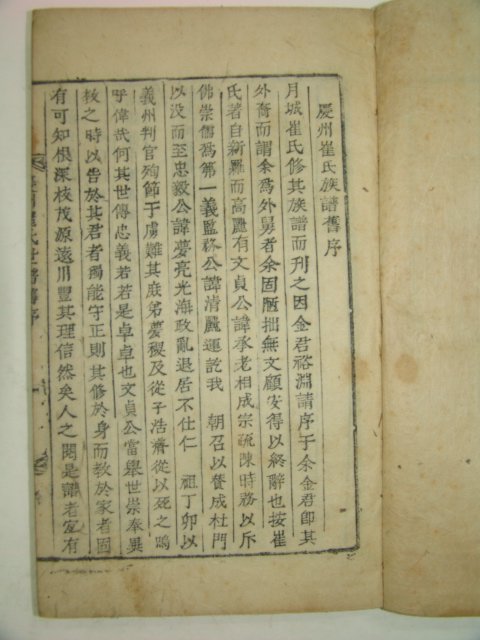 慶州崔氏族譜舊序
月城崔氏修其族譜而刊之因金君裕淵請序于余金君卽其
外裔而謂余爲外舅者余固陋拙無文顧安得以終辭也按崔
氏著自新羅而高麗有文貞公諱承老相成宗疏陳時務以斥
佛崇儒爲第一義監務公諱淸麗運訖我 朝召以贊成杜門
以没而至忠毅公諱夢亮光海政亂退居不仕仁 祖丁卯以
義州判官殉節于虜難其庶弟夢禝及從子浩濟從以死之嗚
乎偉哉何其世傳忠義若若是卓卓也文貞公當擧世崇奉異
敎之時以告於其君者獨能守正則其修於身而敎於家者固
有可知根深枝茂源遠川豐其理信然矣人之 閱是譜者宜有